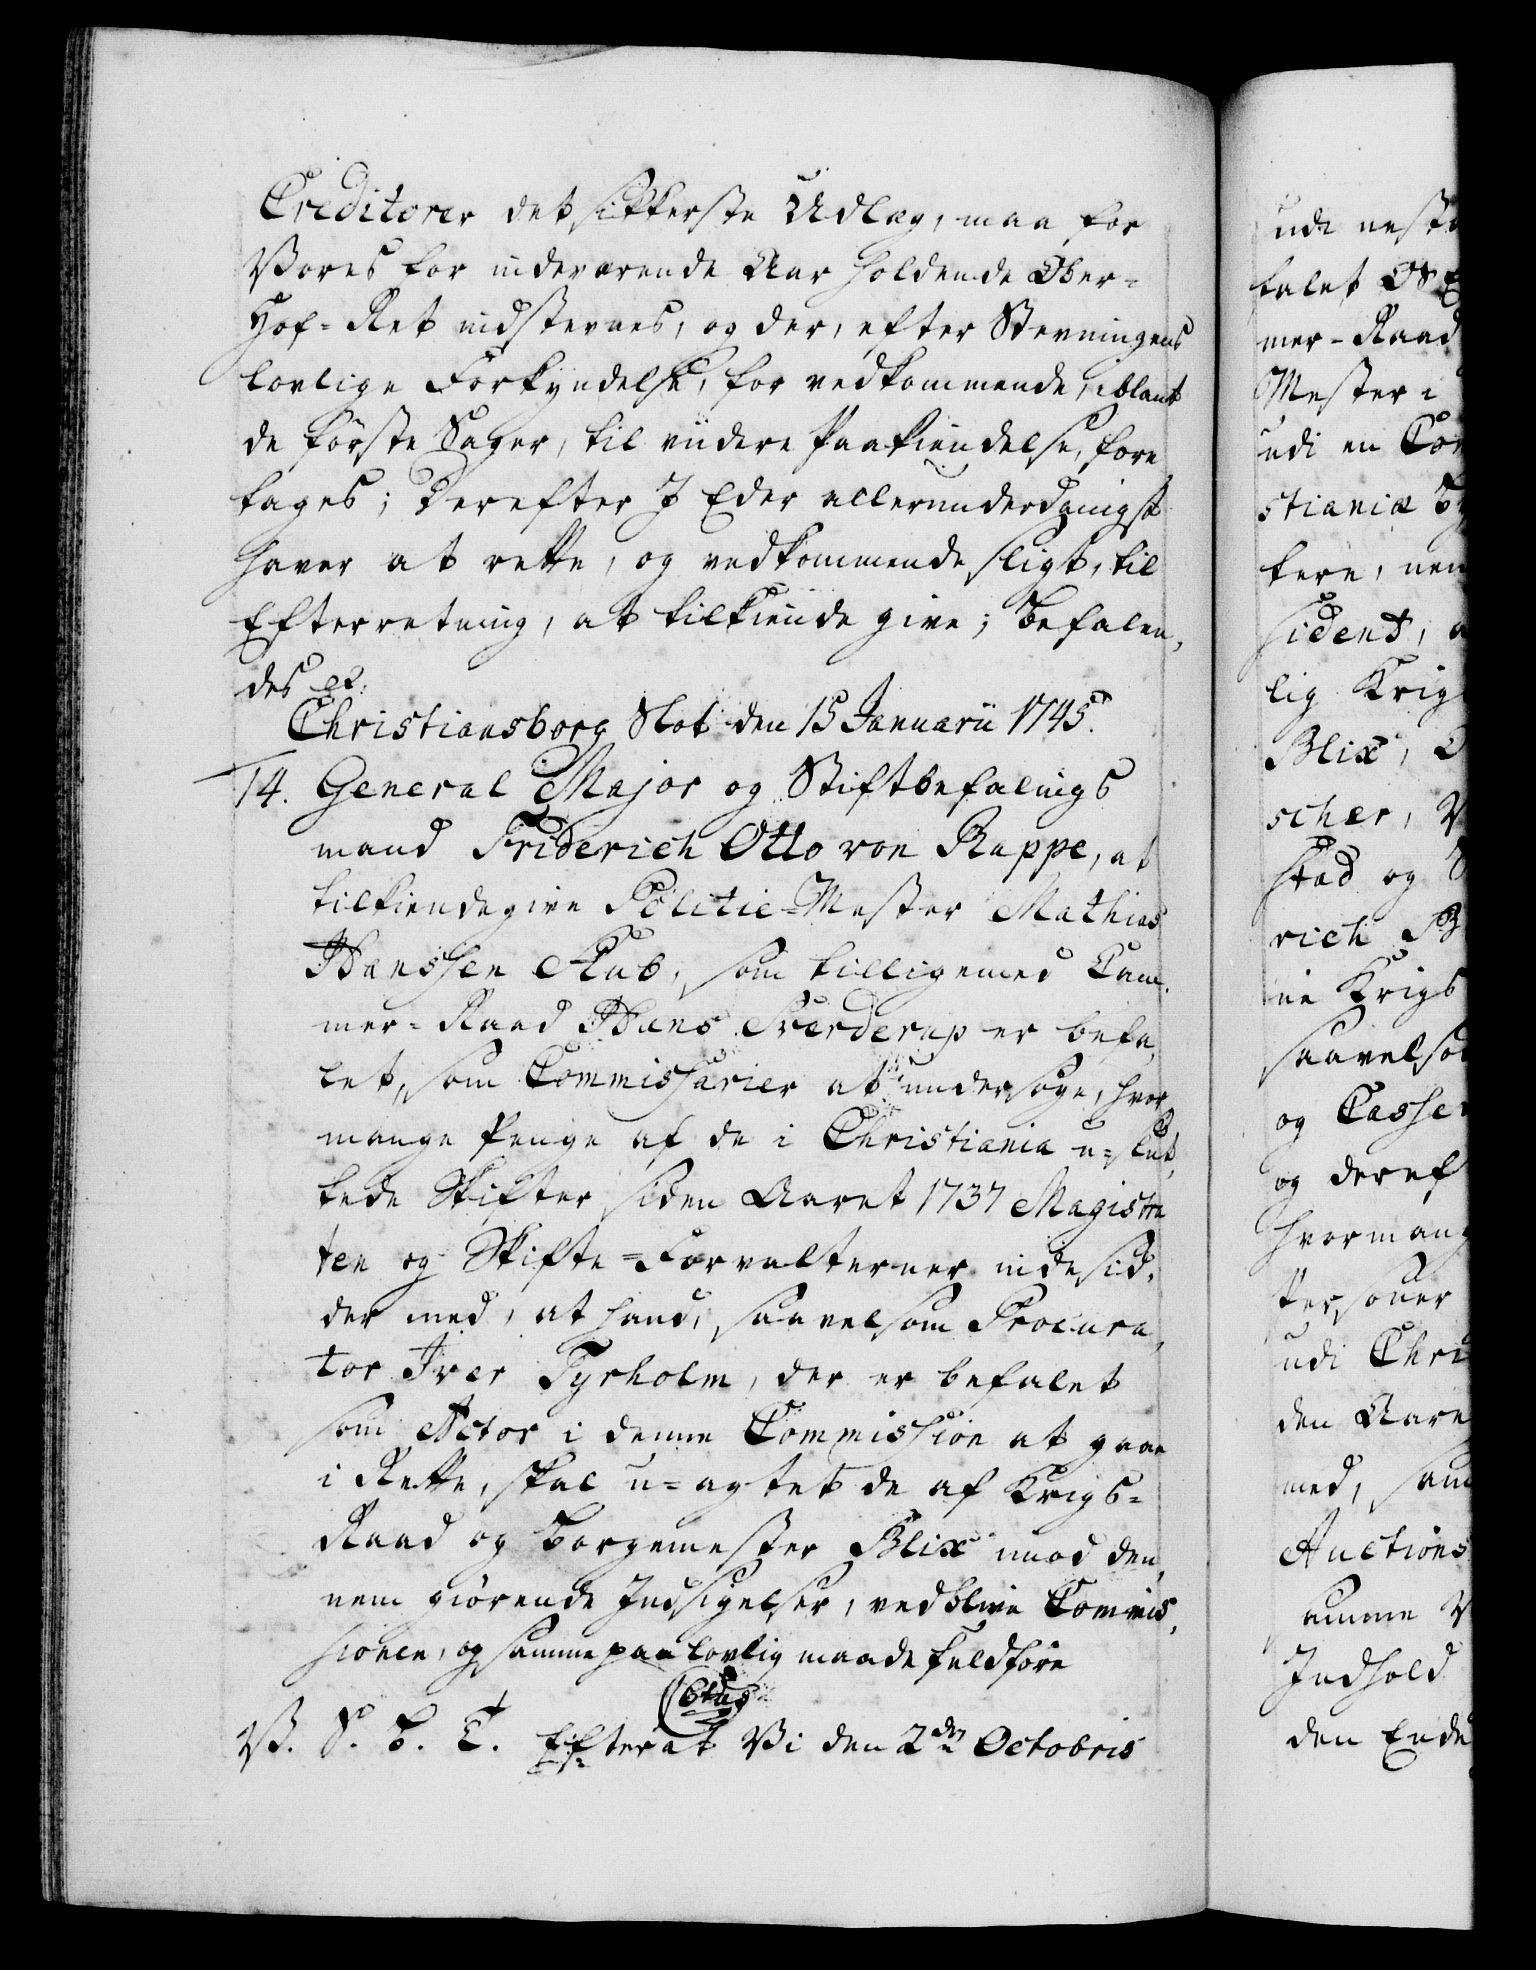 Creditorer det sikkerste Udlæg, maa for
Vores for indeværende Aar holdende Ober-
Hof-Ret indstevnes, og der, efter Stevningens
lovlige Forkyndelse, for vedkommende, iblant
de første Sager, til viidere Paakiendelse, fore
tages; Derefter I Eder allerunderdanigst
haver at rette, og vedkommende sligt, til
Efterretning, at tilkiende give; Befalen,
des etc:
Christiansborg Slot den 15 Januarii 1745.
14. General Major og Stiftbefalings
mand Friderich Otto von Rappe, at
tilkiendegive Politie-Mester Mathias
Hanssen Stub, som tilligemed Cam,
mer-Raad Hans Sverderup er befa,
let, som Commissarier at undersøge, hvor
mange Penge af de i Christiania u-slut,
tede Skifter siden Aaret 1737 Magistra
ten og Skifte-Forvalterner indesid,
der med, at hand, saavelsom Procura,
tor Iver Tyrholm, der er befalet
som Actor i denne Commission at gaae
i Rette, skal u-agtet de af Krigs-
Raad og Borgemester Blix imod den,
nem giørende Indsigelser, vedblive Commis,
sionen, og samme paa lovlig maade fuldføre
V. S. B. T. Efterat Vi den 2den Octobris
ude nest
falet Os
mer-Raad
Mester i
udi en Com
stianiæ By
kere, nem
sident, a
lig Krigs
Blix,
scher, V
stad og
rich
ne Krigs
saavelsom
og Casser
og deref
hvormang
Personer
udi Chri
den Aare
med, sam
Auctions
samme V
Indhold
den Ende